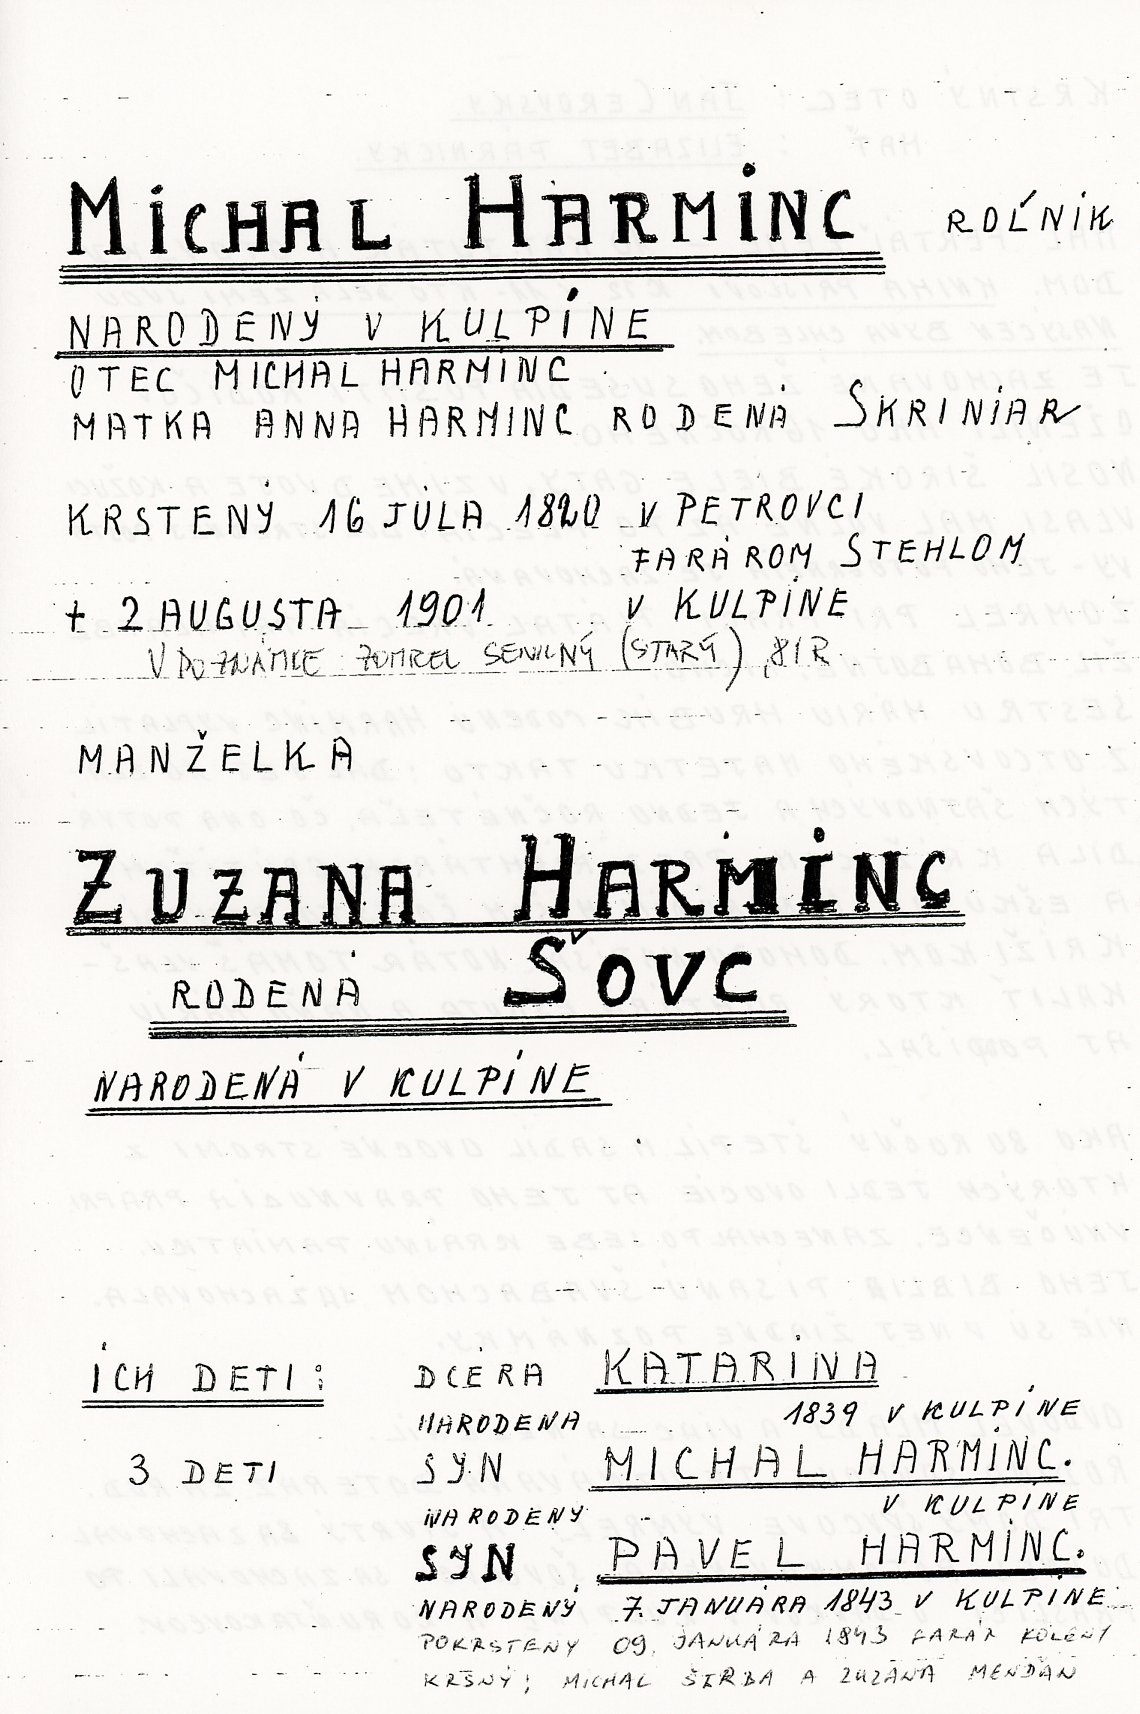 MICHAL HARMINC ROĹNIK
NARODENÝ V KULPÍNE
OTEC MICHAL HARMINC
MATKA ANNA HARMINC RODENÁ SKRINIAR
KRSTENÝ 16 JÚLA 1820 V PETROVCI
FARÁROM STEHLOM
† 2 AUGUSTA 1901 V KULPÍNE
V POZNÁMKE ZOMREL SENILNÝ (STARÝ) 81 R
MANŽELKA
ZUZANA HARMINC
RODENÁ ŠOVC
NARODENÁ V KULPÍNE
ICH DETI: DCÉRA KATARÍNA
NARODENA 1839 V KULPÍNE
3 DETI SYN MICHAL HARMINC.
NARODENÝ V KULPÍNE
SYN PAVEL HARMINC.
NARODENÝ 7. JANUÁRA 1843 V KULPÍNE
POKRSTENY 09. JANUÁRA 1843 FARÁR KOLÉNY
KRSNÝ; MICHAL ŠIRBA A ZUZANA MENDAN